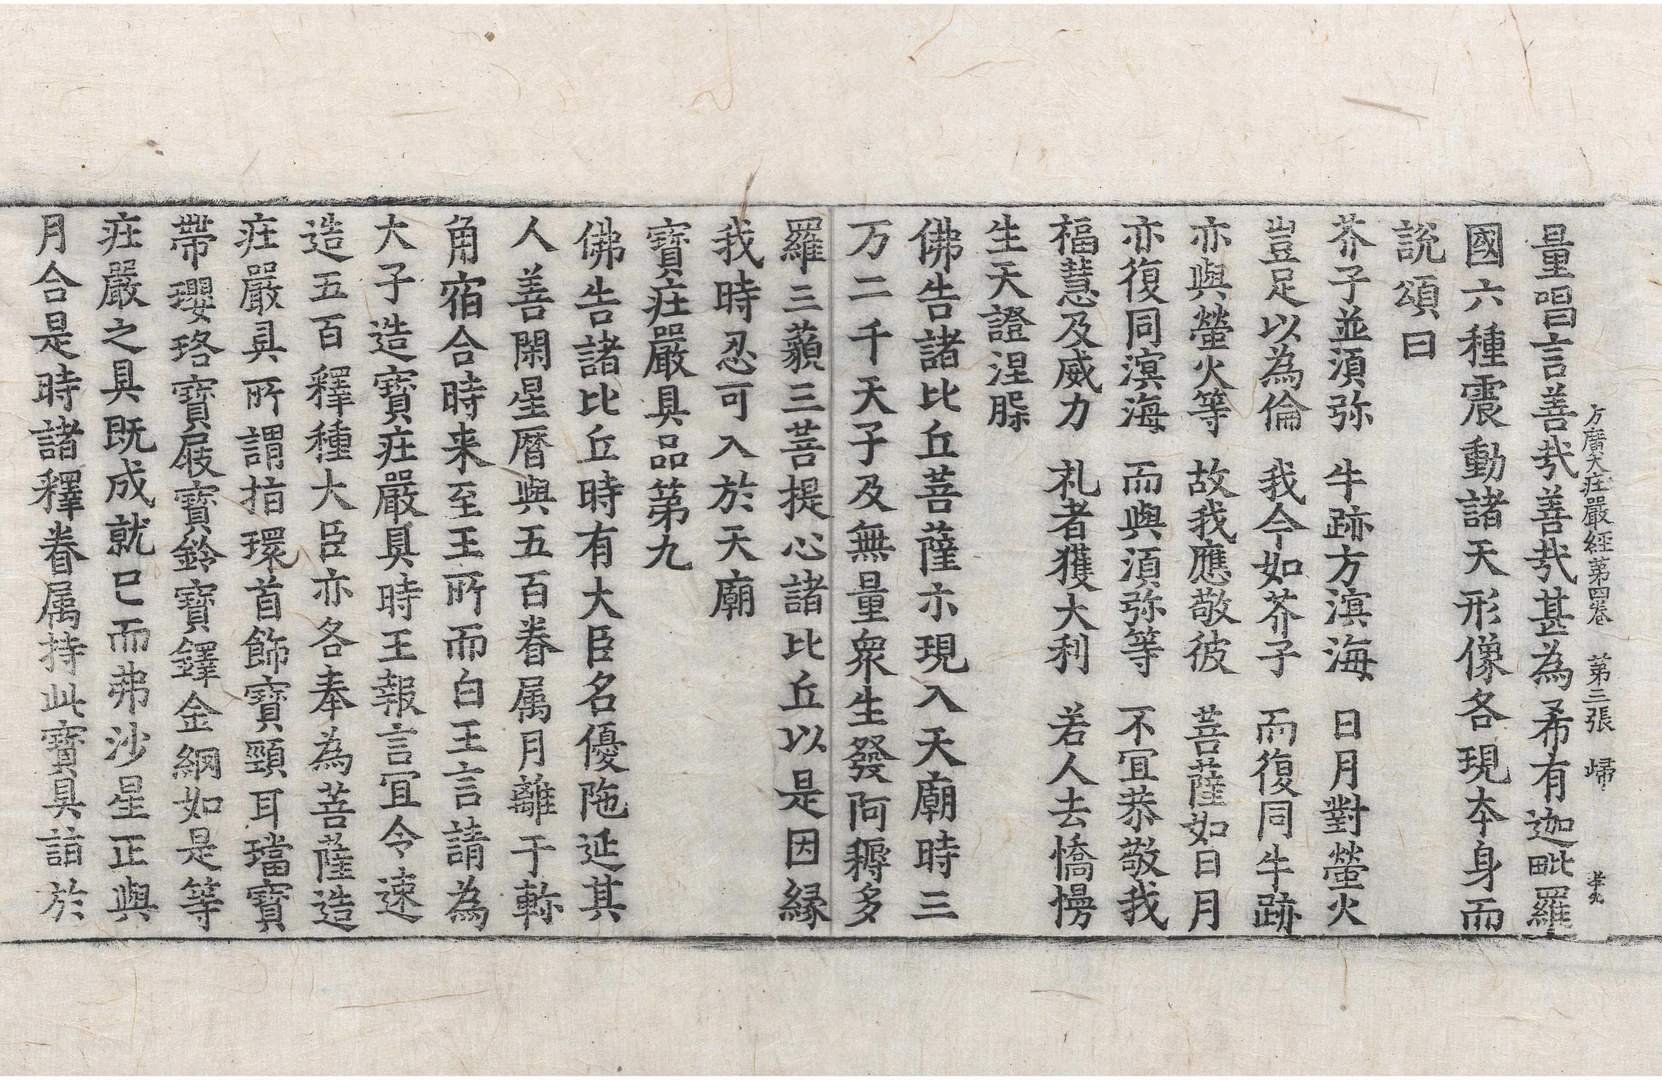 方廣大庄嚴經第四卷 第三張 歸
量唱言善哉善哉甚為希有迦毗羅
國六種震動諸天形像各現本身而
說頌曰
芥子並須弥 牛跡方溟海 日月對螢火
豈足以為倫 我今如芥子 而復同牛跡
亦與螢火等 故我應敬彼 菩薩如日月
亦復同溟海 而與須弥等 不宜恭敬我
福慧及威力 礼者獲大利 若人去憍慢
生天證涅䐉
佛告諸比丘菩薩示現入天廟時三
万二千天子及無量衆生發阿耨多
羅三藐三菩提心諸比丘以是因縁
我時忍可入於天廟
寶庄嚴具品第九
佛告諸比丘時有大臣名優陁延其
人善閑星曆與五百眷属月離于軫
角宿合時来至王所而白王言請為
大子造寶庄嚴具時王報言宜令速
造五百釋種大臣亦各奉為菩薩造
庄嚴具所謂指環首飾寶頸耳璫寶
帶瓔珞寶屐寶鈴寶鐸金網如是等
庄嚴之具既成就已而弗沙星正與
月合是時諸釋眷属持此寶具詣於